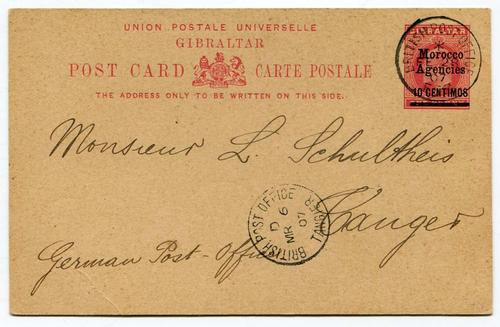 UNION POSTALE UNIVERSELLE
GIBRALTAR
POST CARD CARTE POSTALE
THE ADDRESS ONLY TO BE WRITTEN ON THIS SIDE.
GIBRALTAR
Morocco
Agencies
10 CENTIMOS
BRITISH POST OFFICE
07
Monsieur L. Schultheis
Tanger
German Post-Office
BRITISH POST OFFICE TANGIER
D
6
MR
07